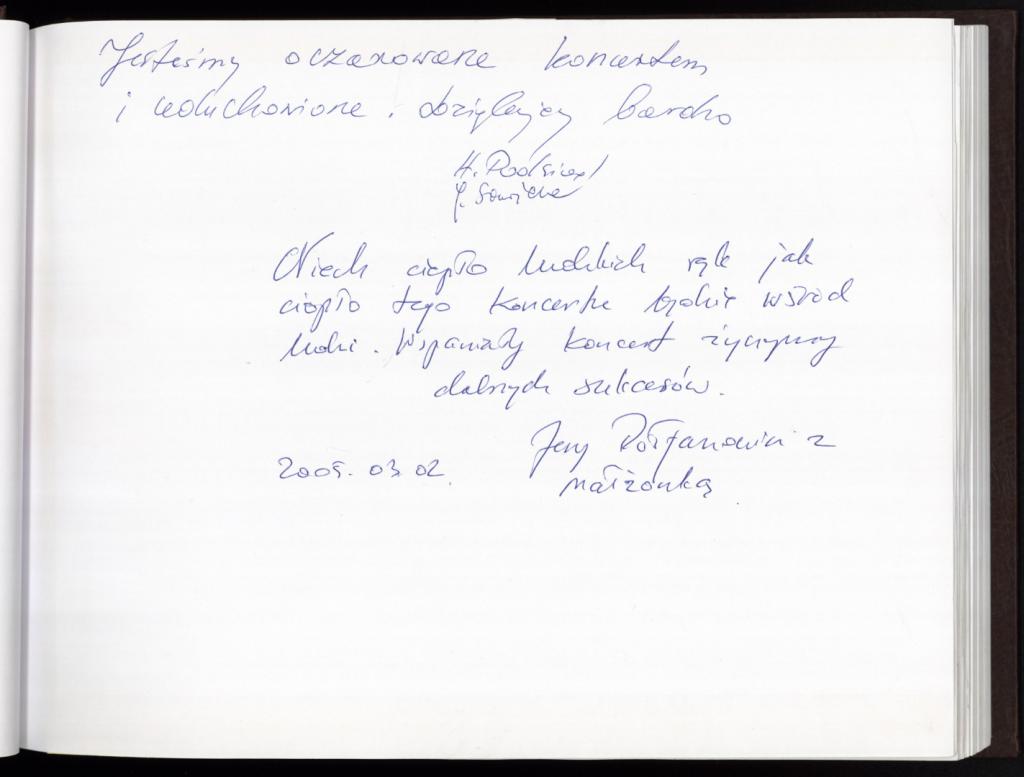 Jesteśmy oczarowane koncertem
i uduchowione. Dziękujemy bardzo
H.
J. Sawicka
Niech ciepło ludzkich rąk jak
ciepło tego koncertu będzie wśród
ludzi. Wspaniały koncert życzymy
dalszych sukcesów.
Jerzy z
2005. 03 02.
małżonką